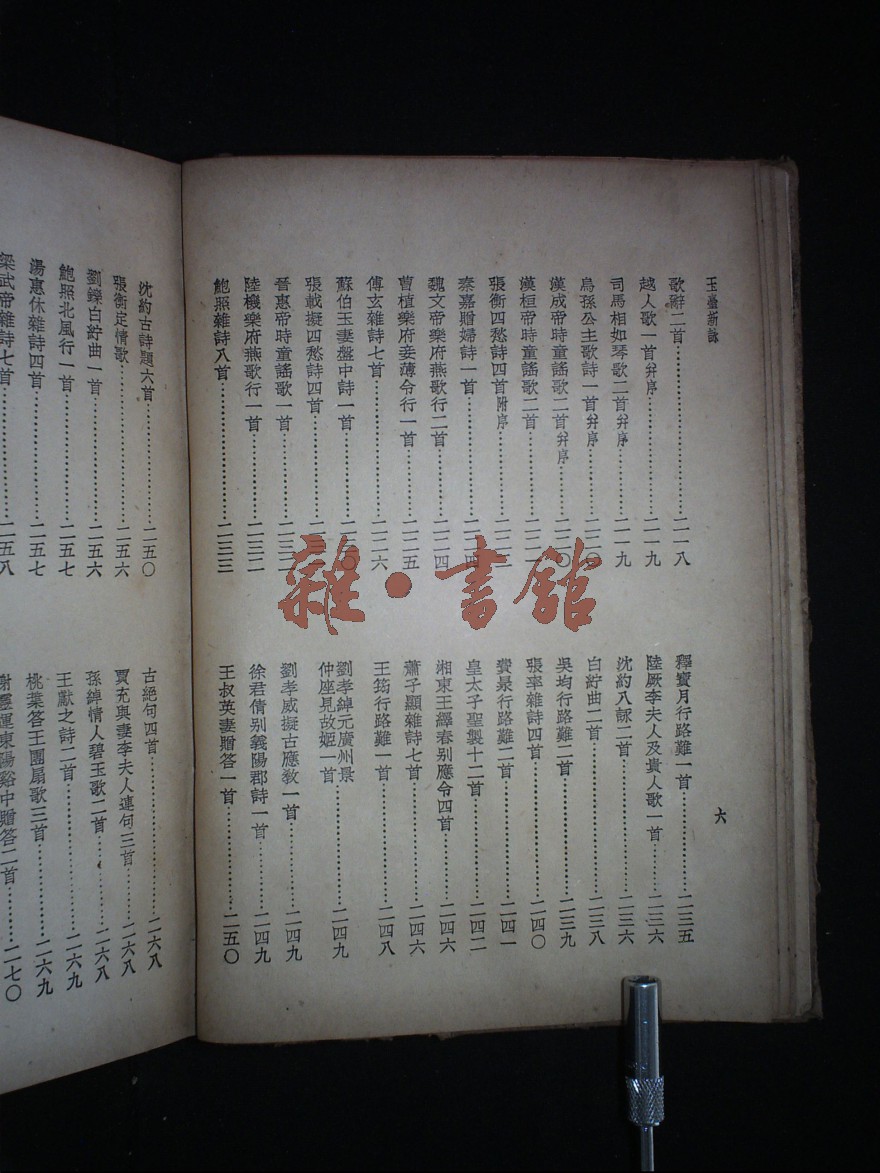 玉臺新詠
六
歌辭二首 二一八
越人歌一首幷序 二一九
司馬相如琴歌二首幷序 二一九
烏孫公主歌詩一首幷序 二二〇
漢成帝時童謠歌二首幷序 二二〇
漢桓帝時童謠歌二首 二二一
張衡四愁詩四首附序
秦嘉贈婦詩一首
魏文帝樂府燕歌行二首 二二四
曹植樂府妾薄命行一首 二二五
傅玄雜詩七首 二二六
蘇伯玉妻盤中詩一首
張載擬四愁詩四首
晉惠帝時童謠歌一首
陸機樂府燕歌行一首 二三二
鮑照雜詩八首 二三三
釋寶月行路難一首 二三五
陸厥李夫人及貴人歌一首 二三六
沈約八詠二首 二三六
白紵曲二首 二三八
吳均行路難二首 二三九
張率雜詩四首 二四〇
費昶行路難二首 二四一
皇太子聖製十二首 二四二
湘東王繹春别應令四首 二四六
蕭子顯雜詩七首 二四六
王筠行路難一首 二四八
劉孝綽元廣州景
仲座見故姬一首 二四九
劉孝威擬古應敎一首 二四九
徐君倩别義陽郡詩一首 二四九
王叔英妻贈答一首 二五〇
沈約古詩題六首 二五〇
張衡定情歌 二五六
劉鑠白紵曲一首 二五六
鮑照北風行一首 二五七
湯惠休雜詩四首 二五七
梁武帝雜詩七首 二五八
古絕句四首 二六八
賈充與妻李夫人連句三首 二六八
孫綽情人碧玉歌二首 二六八
王獻之詩二首 二六九
桃葉答王團扇歌三首 二六九
謝靈運東陽谿中贈答二首 二七〇
雜·書館